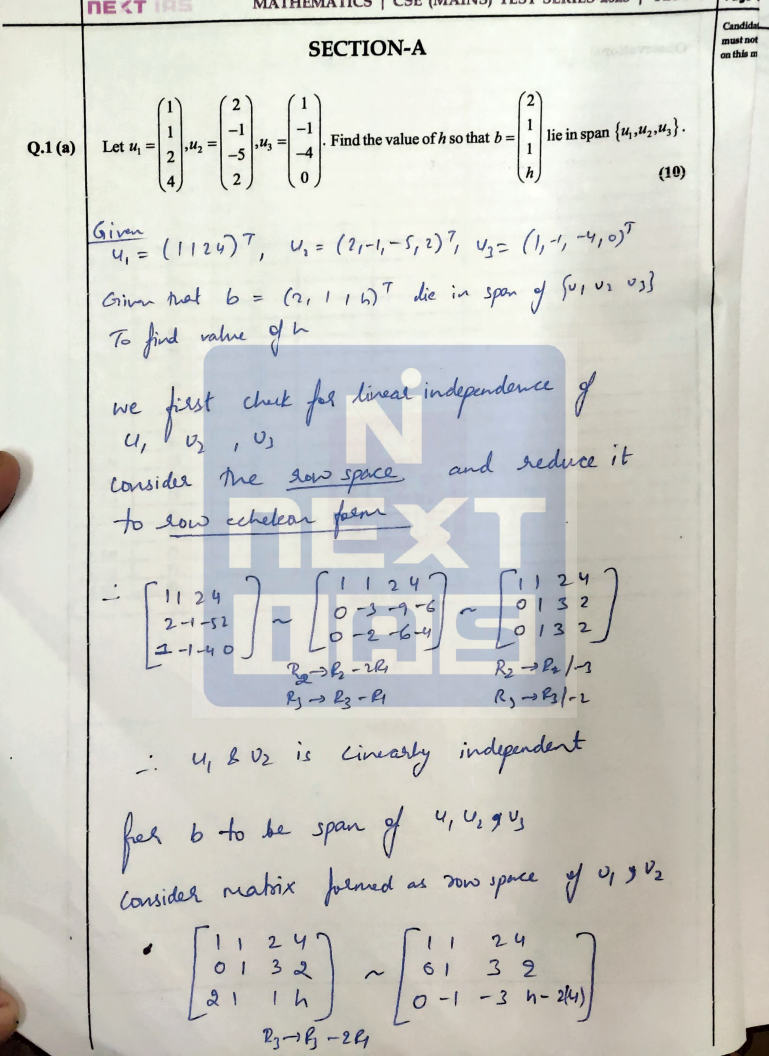 NEXT IAS
MATHEMATICS | CSE (MAINS) TEST SERIES
Candidat
must not
on this m
SECTION-A
Q.1 (a) Let u₁ = (1 1 2 4), u₂ = (2 −1 −5 2), u₃ = (1 −1 −4 0). Find the value of h so that b = (2 1 1 h) lie in span {u₁,u₂,u₃}.
(10)
Given
u₁ = (1 1 2 4)ᵀ, u₂ = (2,-1,-5,2)ᵀ, u₃ = (1,-1,-4,0)ᵀ
Given that b = (2, 1 1 h)ᵀ lie in span of {u₁ u₂ u₃}
To find value of h
we first check for linear independence of
u₁ u₂ , u₃
consider the row space and reduce it
to row echelon form
∴ [1 1 2 4 ~ [1 1 2 4 ~ [1 1 2 4
2 -1 -5 2 0 -3 -9 -6 0 1 3 2
1 -1 -4 0] 0 -2 -6 -4] 0 1 3 2]
R₂→R₂-2R₁ R₂→R₂/-3
R₃→R₃-R₁ R₃→R₃/-2
∴ u₁ & u₂ is Linearly independent
for b to be span of u₁ u₂ , u₃
Consider matrix formed as row space of u₁ , u₂
[1 1 2 4 ~ [1 1 2 4
0 1 3 2 0 1 3 2
2 1 1 h] 0 -1 -3 h-2(4)]
R₃→R₃-2R₁
NEXT
IAS